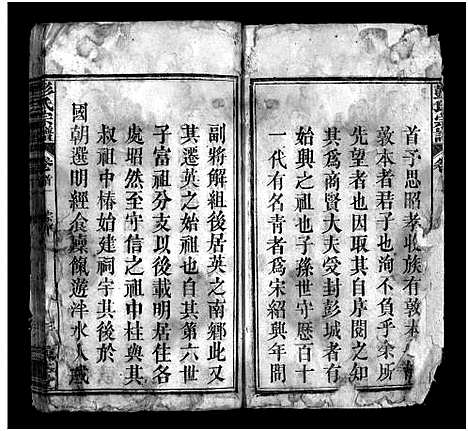 彭氏宗譜
卷首
首予思昭孝收族有敦本
敦本者君子也洵不負乎余所
先望者也因取其自序閱之知
其為商賢大夫受封彭城者有
始興之祖也子孫世守歷百十
一代有名青者為宋紹興年間
副將解組後居英之南鄉此又
其遷英之始祖也自其第六世
子富祖分支以後載明居住各
處昭然至守信之祖中柱與其
叔祖中椿始建祠宇其後於
國朝選明經食廩餼遊泮水人咸
彭氏宗譜
卷首